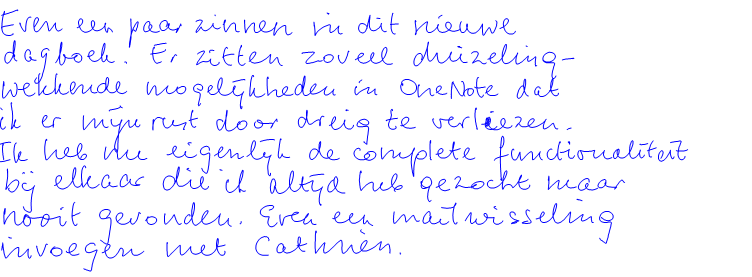 Even een paar zinnen in dit nieuwe
dagboek! Er zitten zoveel duizeling-
wekkende mogelijkheden in OneNote dat
ik er mijn rust door dreig te verliezen.
Ik heb nu eigenlijk de complete functionaliteit
bij elkaar die ik altijd heb gezocht maar
nooit gevonden. Even een mailwisseling
invoegen met Cathrien.